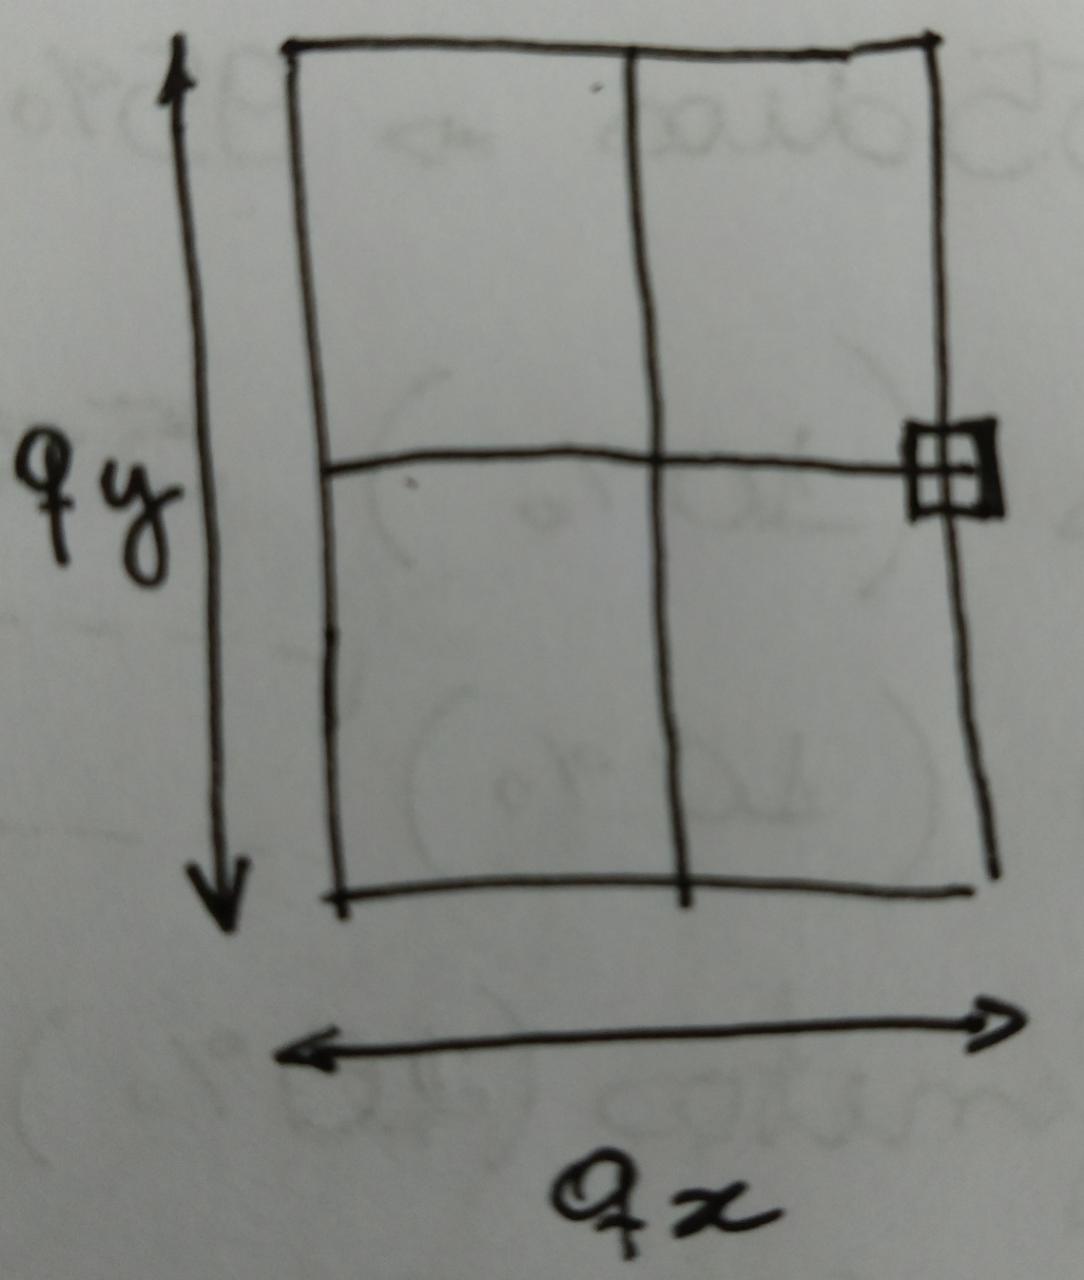 qy
qx